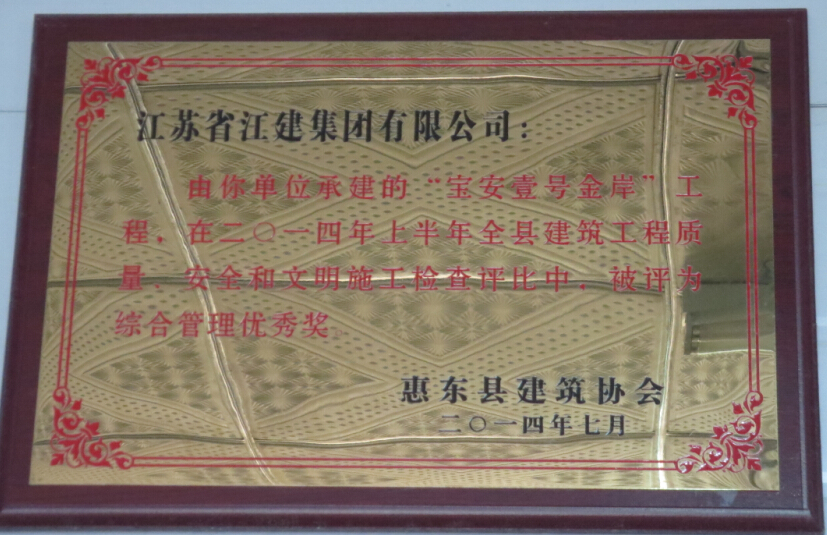 江苏省江建集团有限公司：
由你单位承建的“宝安壹号金岸”工
程，在二〇一四年上半年全县建筑工程质
量、安全和文明施工检查评比中，被评为
综合管理优秀奖。
惠东县建筑协会
二〇一四年七月